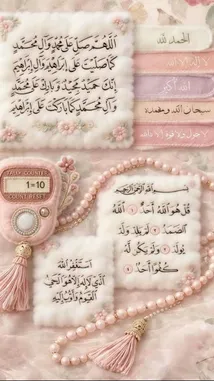 اللهم صل على محمد وآل محمد
كما صليت على إبراهيم وآل إبراهيم
إنك حميد مجيد وبارك على محمد
وآل محمد كما باركت على إبراهيم
الحمد لله
لا إله إلا الله
الله أكبر
سبحان الله وبحمده
لا حول ولا قوة إلا بالله
TALLY COUNTER
1=10
COUNTER
بسم الله الرحمن الرحيم
قُلْ هُوَ اللَّهُ أَحَدٌ ١ اللَّهُ
الصَّمَدُ ٢ لَمْ يَلِدْ وَلَمْ
يُولَدْ ٣ وَلَمْ يَكُن لَّهُ
كُفُوًا أَحَدٌ ٤
أستغفر الله
الذي لا إله إلا هو الحي
القيوم وأتوب إليه